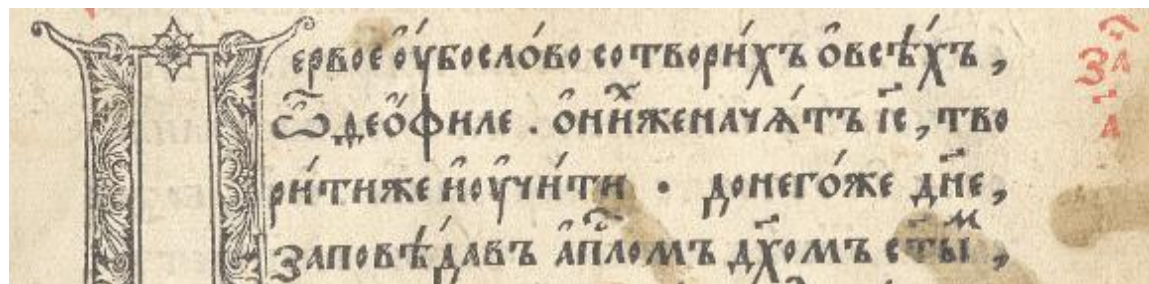 Первое ᲂу҆бо сло́во сотвори́хъ ѻ҆всѣ́хъ , за҃
Ѽ҆деѻ҆́филе . ѻ҆ни́хже нача́тъ і҆с҃ , тво а҃
ри́тиже и҆ᲂу҆чи́ти · донего́же дн҃е ,
заповѣ́давъ а҆пⷭ҇ломъ дх҃омъ ст҃ыⷨ ,